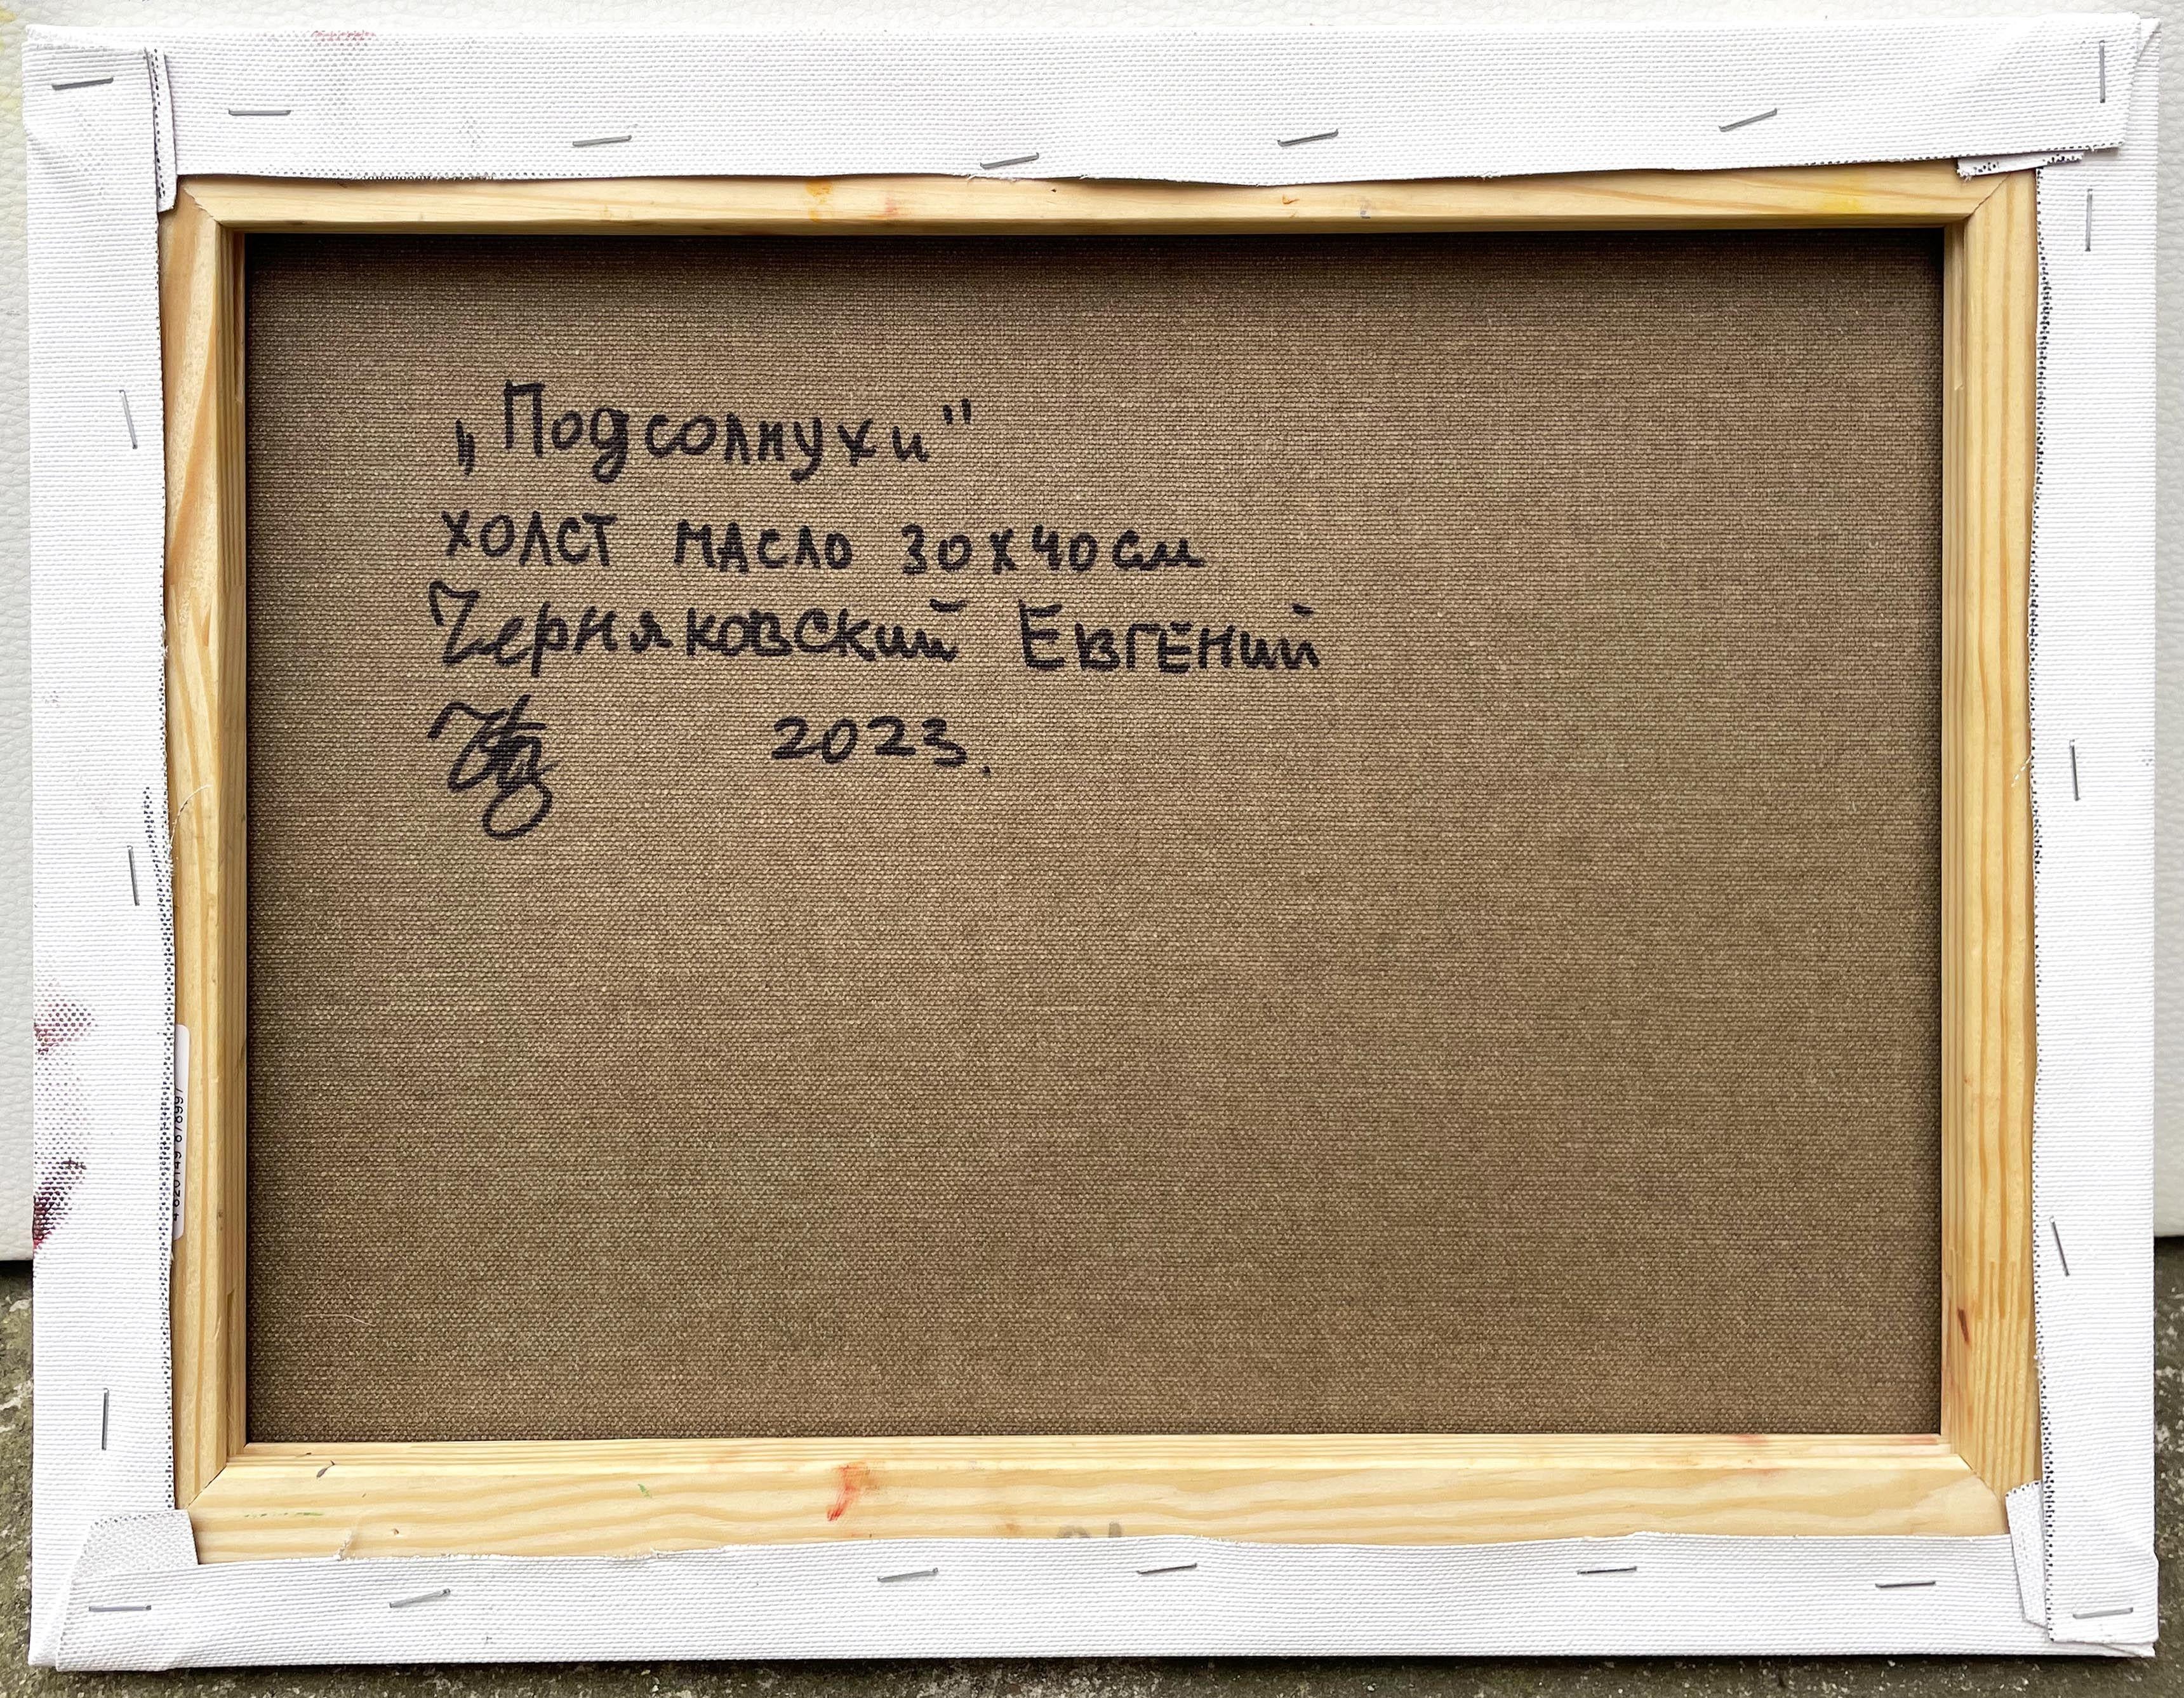 „Подсолнухи"
ХОЛСТ МАСЛО 30Х40см
Черняковский Евгений
2023.